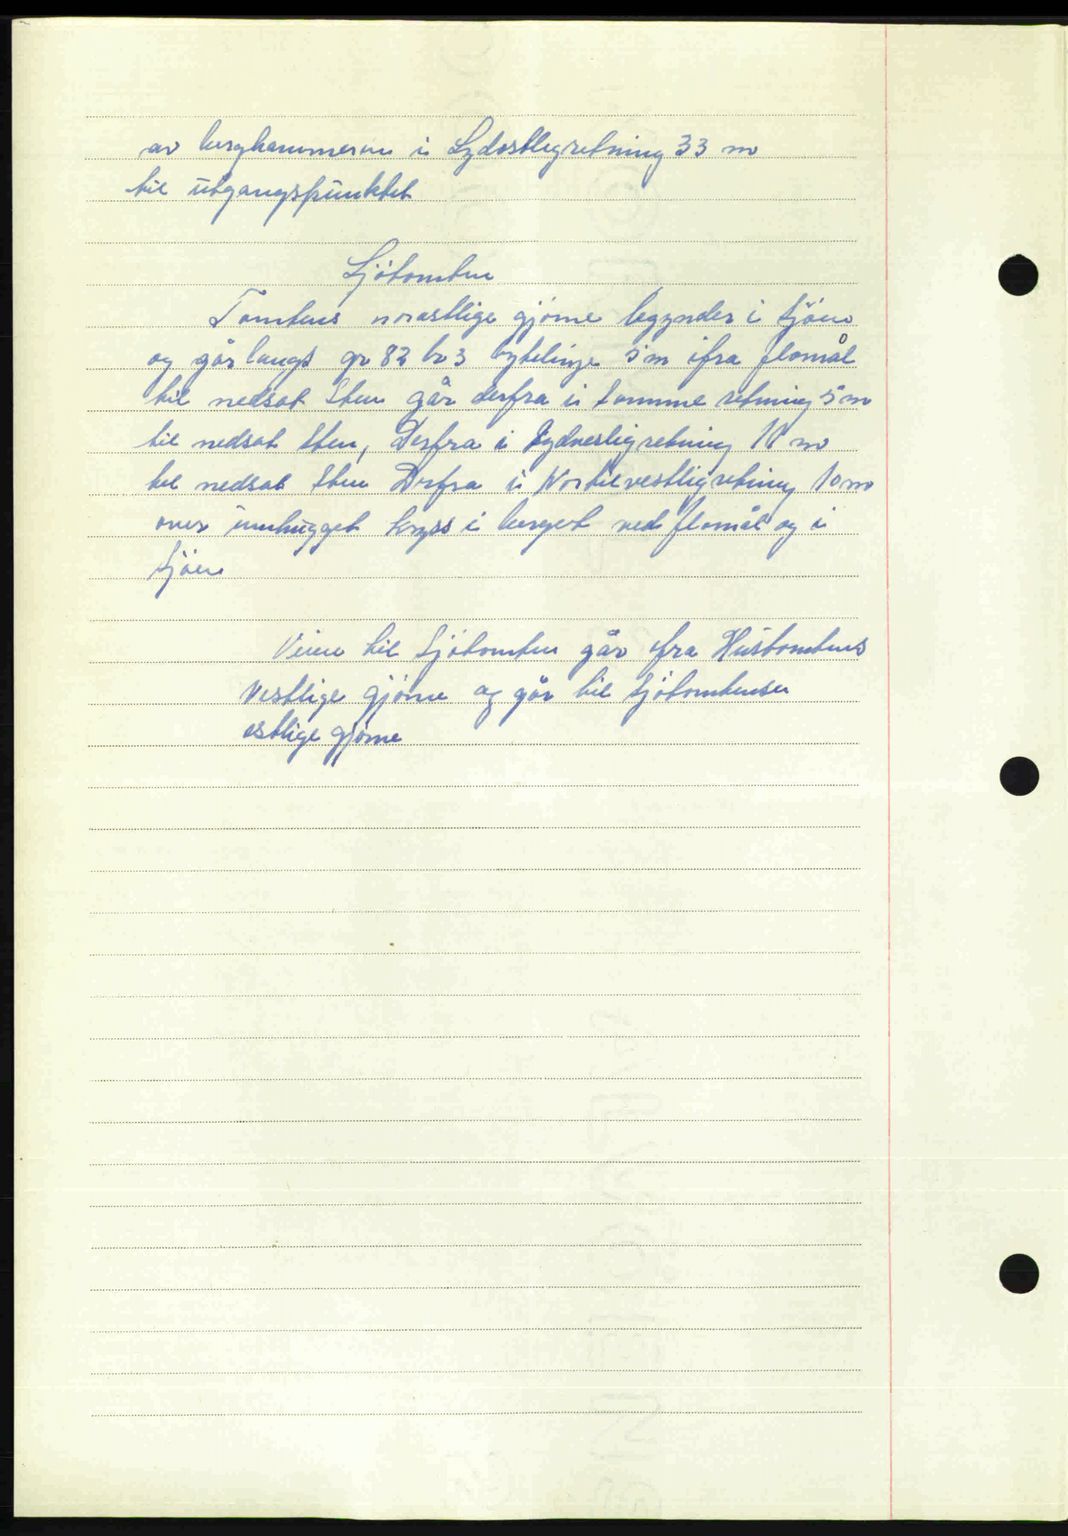 av berghammeren i Sydostlig retning 33 m
til utgangspunktet
Sjötomten
Tomtens norostlige gjörne begynder i sjöen
og går langs gr 82 br 3 bytelinje 5 m ifra flomål
til nedsat Sten går derfra i samme retning 5 m
til nedsat Sten, Derfra i Sydvestlig retning 11 m
til nedsat Sten Derfra i Nordvestlig retning 10 m
over innhugget kryss i berget ved flomål og i
sjöen
Veien til Sjötomten går ifra Hustomtens
vestlige gjörne og går til sjötomtensen
estlige gjörne